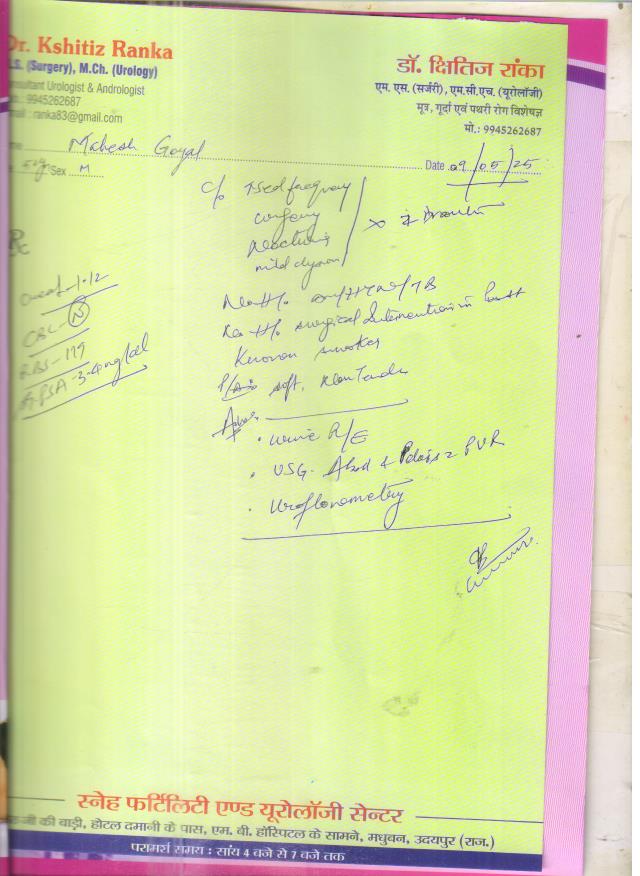 Dr. Kshitiz Ranka
.S. (Surgery), M.Ch. (Urology)
nsultant Urologist & Andrologist
: 9945262687
mail : ranka83@gmail.com
डॉ. क्षितिज रांका
एम. एस. (सर्जरी), एम.सी.एच. (यूरोलॉजी)
मूत्र, गूर्दा एवं पथरी रोग विशेषज्ञ
मो.: 9945262687
me Mahesh Goyal Date 09/05/25
Sex M
c/o frequency
urgency
mild
Creat - 1.12
CBC - N
RBS - 119
PSA - 3.4 ng/ml
No H/o /TB
No H/o surgical intervention in past
Known smoker
P/A soft, Non Tender
Adv.
. Urine R/E
. USG. Abd & Pelvis PVR
. Uroflowmetry
स्नेह फर्टिलिटी एण्ड यूरोलॉजी सेन्टर
जी की बाड़ी, होटल दमानी के पास, एम. बी. हॉस्पिटल के सामने, मधुबन, उदयपुर (राज.)
परामर्श समय : सांय 4 बजे से 7 बजे तक